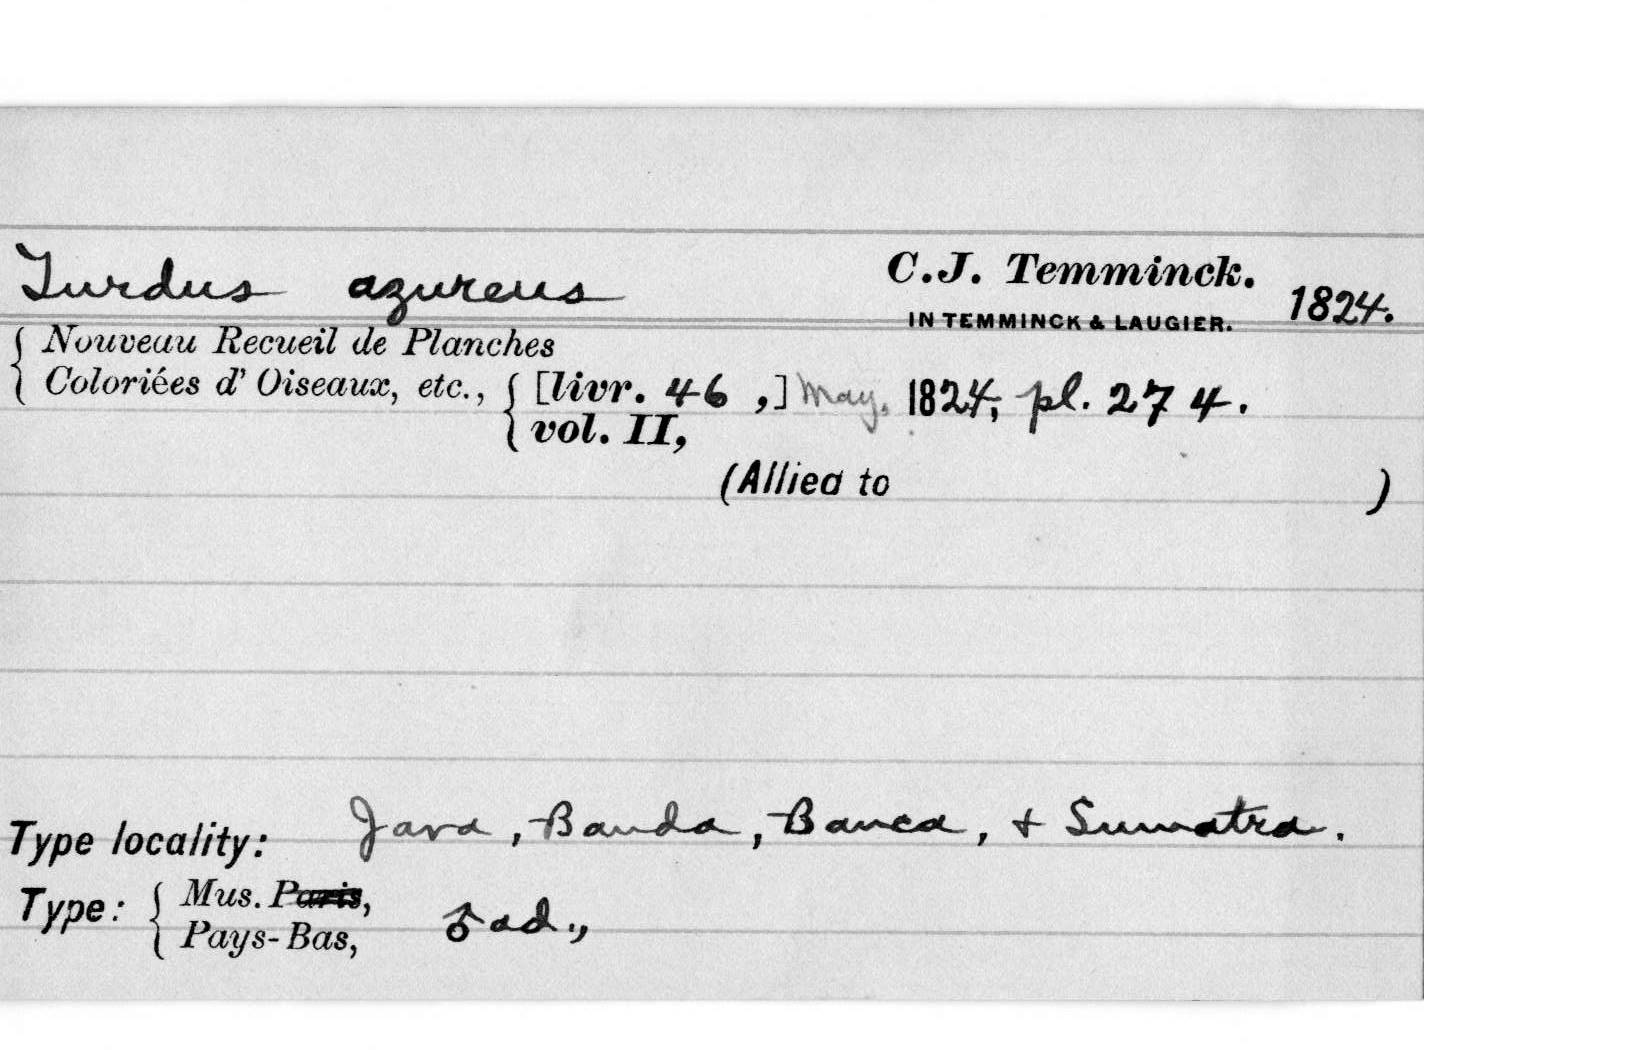 Turdus azureus C.J. Temminck. 1824.
IN TEMMINCK & LAUGIER.
{ Nouveau Recueil de Planches
Coloriées d' Oiseaux, etc., { [livr. 46 ,] May, 1824, pl. 274.
vol. II,
(Allied to )
Type locality: Java, Banda, Banca, + Sumatra.
Type: { Mus. Paris,
Pays-Bas, ♂ ad.,